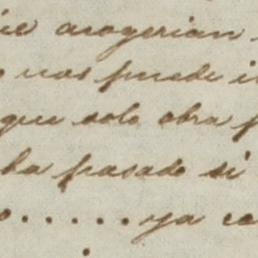 ie acogerian
nos puede i
que solo obra p
ha pasado si
o......ya ca